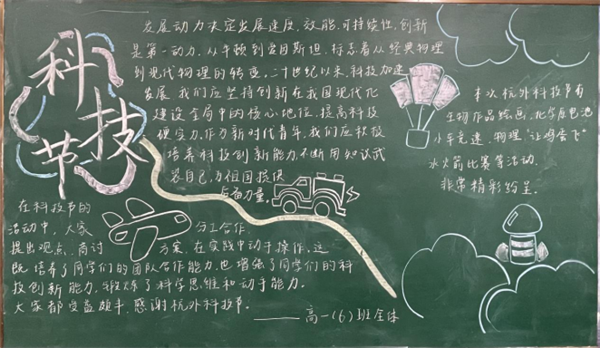 科技节
发展动力决定发展速度、效能、可持续性,创新
是第一动力。从牛顿到爱因斯坦,标志着从经典物理
到现代物理的转变。二十世纪以来,科技加速
发展,我们应坚持创新在我国现代化
建设全局中的核心地位,提高科技
硬实力。作为新时代青年,我们应积极
培养科技创新能力,不断用知识武
装自己,为祖国提供
后备力量。
本次杭外科技节有
生物作品绘画,化学原电池
小车竞速,物理"让鸡蛋飞"
水火箭比赛等活动,
非常精彩纷呈。
在科技节的
活动中,大家 分工合作,
提出观点,商讨 方案,在实践中动手操作,这
既培养了同学们的团队合作能力,也增强了同学们的科
技创新能力,锻炼了科学思维和动手能力。
大家都受益颇丰,感谢杭外科技节。
——高一(6)班全体